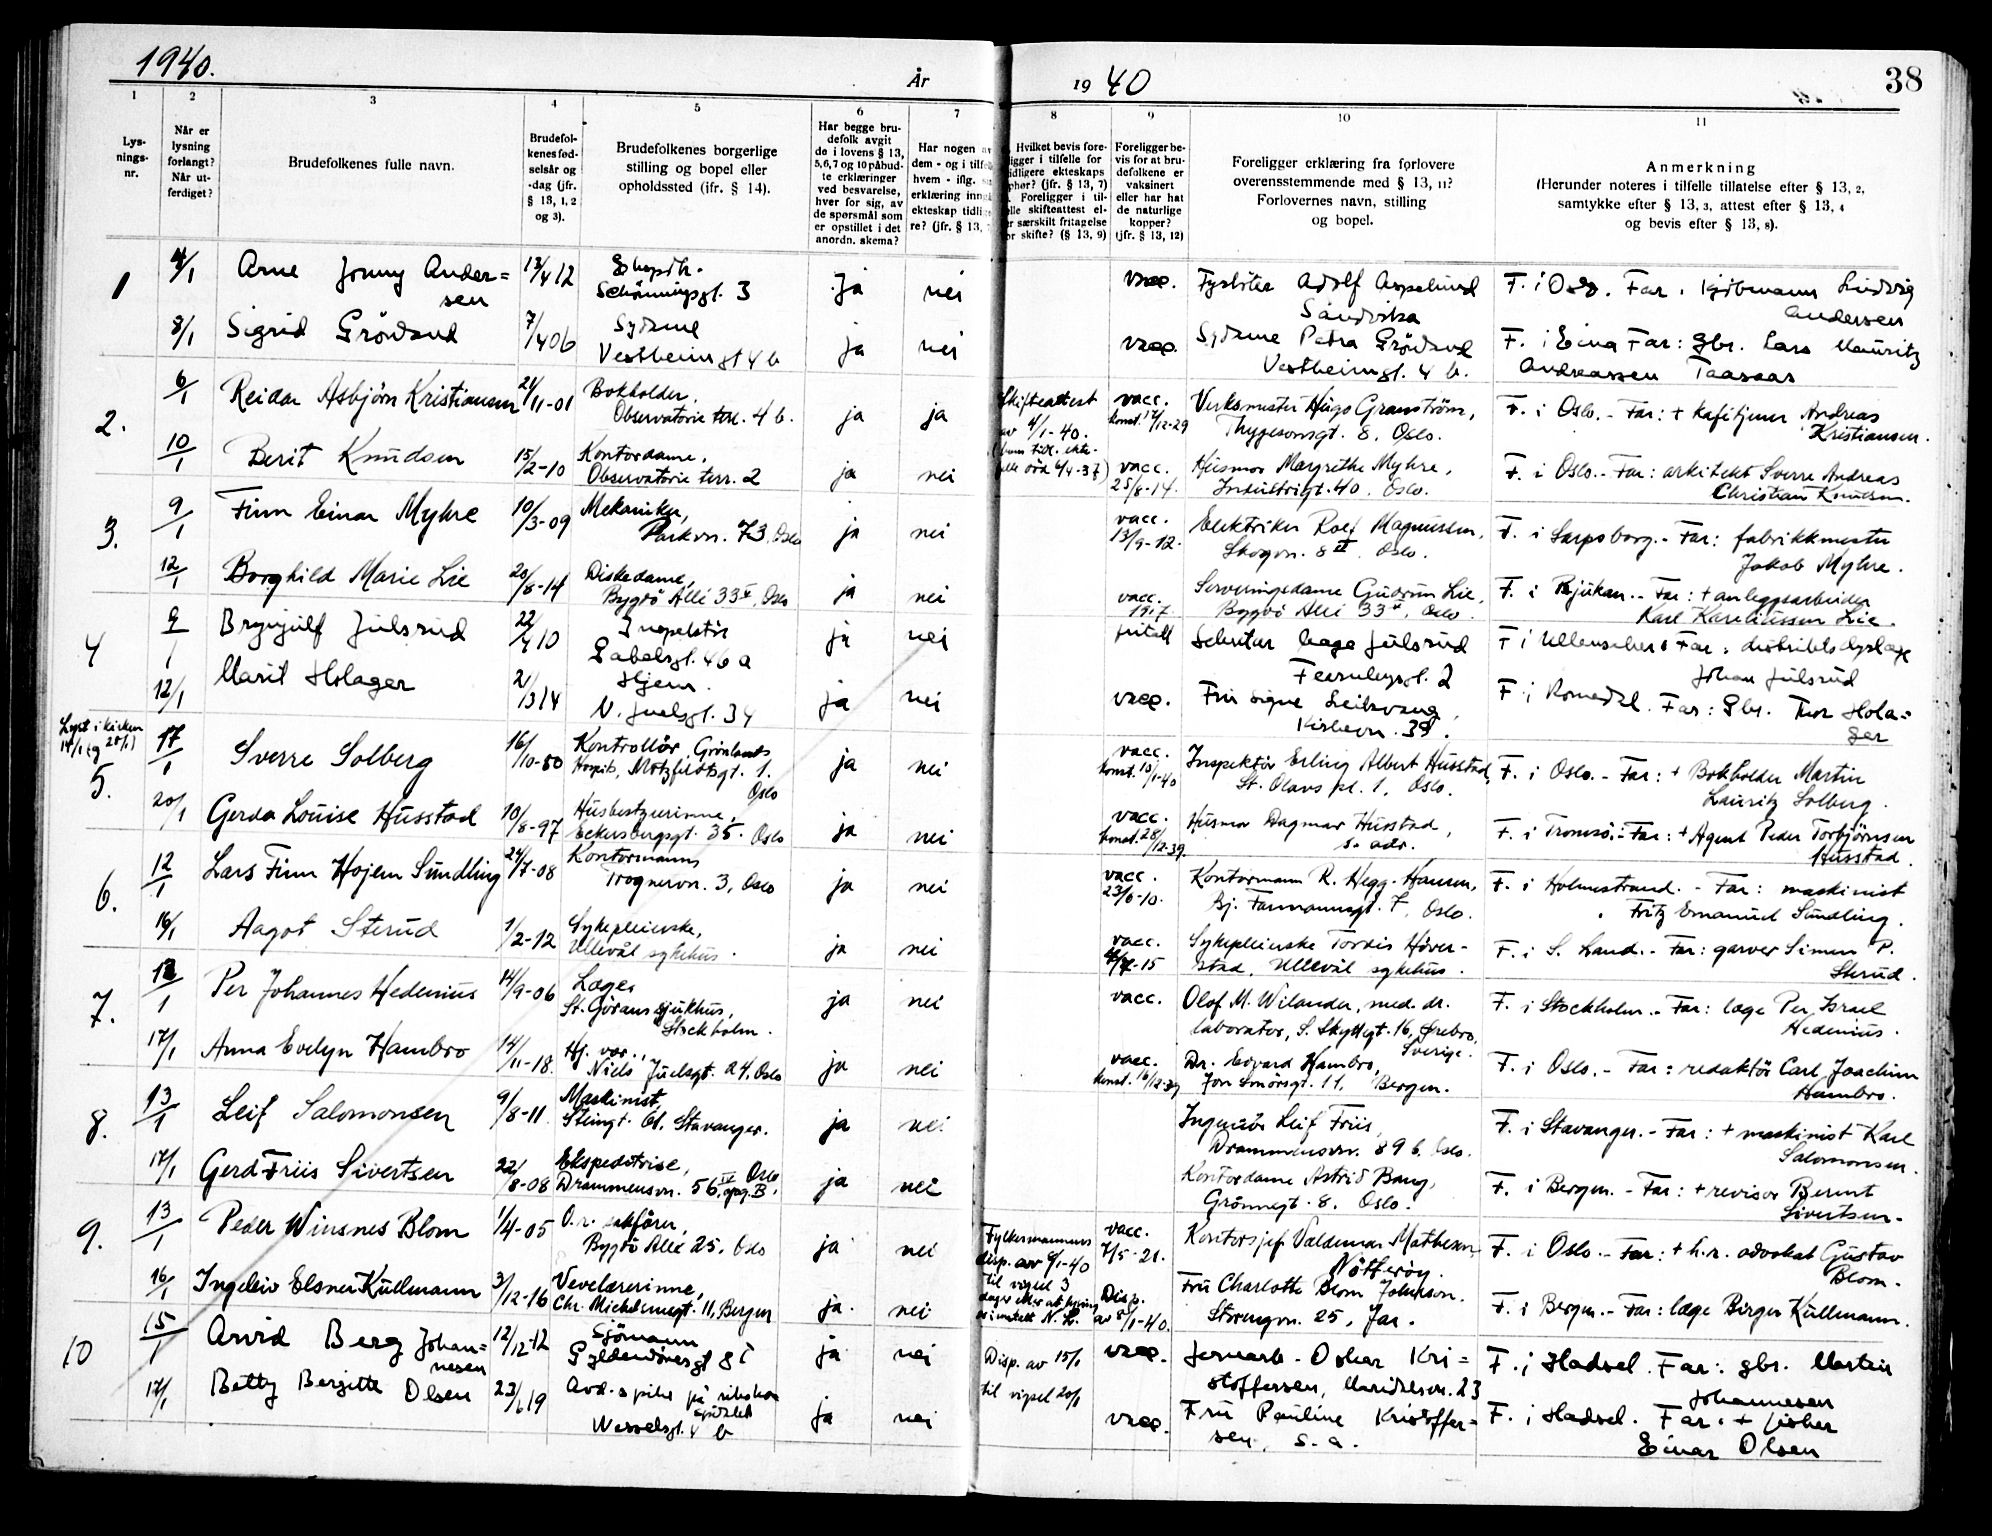 1940.
År
1940
38
1
2
3
4
5
6
7
8
9
10
11
Lys-
nings-
nr.
Når er
lysning
forlangt?
Når ut-
ferdiget?
Brudefolkenes fulle navn.
Brudefol-
kenes fød-
selsår og
-dag (jfr.
§ 13, 1, 2
og 3).
Brudefolkenes borgerlige
stilling og bopel eller
opholdssted (ifr. § 14).
Har begge bru-
defolk avgit
de i lovens § 13,
5, 6, 7 og 10 påbud-
te erklæringer
ved besvarelse,
hver for sig, av
de spørsmål som
er opstillet i det
anordn. skema?
Har nogen
dem - og i
hvem - iflg.
erklæring
ekteskap
re? (jfr. § 13,
Hvilket bevis fore-
ligger i tilfelle for
tidligere ekteskaps
ophør? (jfr. § 13, 7)
Foreligger i til-
felle skifteattest el-
er særskilt fritagelse
for skifte? (§ 13, 9)
Foreligger be-
vis for at bru-
defolkene er
vaksinert
eller har hat
de naturlige
kopper?
(jfr. § 13, 12)
Foreligger erklæring fra forlovere
overensstemmende med § 13, 11?
Forlovernes navn, stilling
og bopel.
Anmerkning
(Herunder noteres i tilfelle tillatelse efter § 13, 2,
samtykke efter § 13, 3, attest efter § 13, 4
og bevis efter § 13, 8).
1
4/1 Arne Jonny Ander=
sen
13/4 12
Schönningsgt. 3
ja nei
vacc.
Adolf Aspelund
Sandvika
F. i Oslo. Far: Ludvig
Andersen
8/1 Sigrid Grödsrud
7/4 06
Vestheimgt 4 b
ja nei
vacc.
Petra Grödsrud
Vestheimgt. 4 b.
F. i Eina Far: gbr. Lars Mauritz
Andreassen Taasaas
2.
6/1 Reidar Asbjörn Kristiansen
21/11-01
Bokholder,
Observatorie terr. 4 b.
ja ja
Skifteattest
av 4/1-40.
vacc.
konst. 17/12-29
Verksmester Hugo Granström,
Thygesonsgt. 8, Oslo.
F. i Oslo. - Far: + kafétjener Andreas
Kristiansen.
10/1 Berit Knudsen
15/2-10
Kontordame,
Observatorie terr. 2
ja nei
vacc.
25/8-14.
Husmor Margrethe Myhre,
Industrigt. 40, Oslo.
F. i Oslo. - Far: arkitekt Sverre Andreas
Christian Knudsen.
3.
9/1 Finn Einar Myhre
10/3-09
Mekaniker,
Parkvn. 73, Oslo
ja nei
vacc.
13/9-12.
Elektriker Rolf Magnussen,
Skogvn. 8 II, Oslo.
F. i Sarpsborg. - Far: fabrikkmester
Jakob Myhre.
12/1 Borghild Marie Lie
20/8-14
Diskedame,
Bygdö Allé 33 V, Oslo
ja nei
vacc.
1917
Serveringsdame Gudrun Lie,
Bygdö Allé 33 V, Oslo.
F. i Rjukan. - Far: + anleggsarbeider
Karl Kareliussen Lie.
4
9/1 Brynjulf Julsrud
22/4 10
Gabelsgt. 46 a
ja nei
Sekretær Aage Julsrud
Fearnleysgt. 2
F i Ullensaker Far: distriktsdyrlæge
Johan Julsrud
12/1 Marit Holager
2/3 14
Hjem.
N. Juelsgt. 34
ja nei
vacc.
Fru Signe
Kirkevn. 39.
F. i Romedal. Far: Gbr. Thor Hola=
ger
Lyst i kirken
14/1 og 20/1
5.
17/1 Sverre Solberg
16/10-80
Kontrollör Grönlands
Hospits, Motzfeldtsgt. 1.
Oslo
ja nei
vacc.
konst. 13/1-40
Inspektör Erling Albert Husstad,
St. Olavs pl. 1, Oslo.
F. i Oslo. - Far: + Bokholder Martin
Lauritz Solberg.
20/1 Gerda Louise Husstad
10/8-97
Husbestyrerinne,
Eckersbergsgt. 35. Oslo
ja nei
vacc.
konst. 28/12-39.
Husmor Dagmar Husstad,
s. adr.
F. i Tromsö. - Far: + Agent Peder Torbjörnsen
Husstad.
6.
12/1 Lars Finn Hojem Sundling
24/7-08
Kontormann
Frognervn. 3, Oslo
ja nei
vacc.
23/6-10.
Kontormann R. Hegg-Hansen,
Bj. Farmannsgt. 7, Oslo.
F. i Holmestrand. - Far: maskinist
Fritz Emanuel Sundling.
16/1 Aagot Sterud
1/2-12
Sykepleierske,
Ullevål sykehus.
ja nei
vacc.
Sykepleierske Tordis Höver-
stad, Ullevål sykehus.
F. i S. Land. - Far: garver Simen P.
Sterud.
7.
12/1 Per Johannes Hedenius
14/9-06
Læge,
St. Görans sjukhus,
Stockholm.
ja nei
vacc.
Olof M. Wilander, med. dr.
laborator, S. Skyttgt. 16, Örebro,
Sverige.
F. i Stockholm. - Far: læge Per Israel
Hedenius.
17/1 Anna Evelyn Hambro
14/11-18.
Hj. vær.,
Niels Juelsgt. 24, Oslo
ja nei
vacc.
konst. 16/12-39
Dr. Edvard Hambro,
Jon Smörsgt. 11, Bergen.
F. i Oslo. - Far: redaktör Carl Joachim
Hambro.
8.
13/1 Leif Salomonsen
9/8-11.
Maskinist,
Steingt. 61. Stavanger.
ja nei
Ingeniör Leif Friis,
Drammensvn. 89 b. Oslo.
F. i Stavanger. - Far: + maskinist Karl
Salomonsen.
17/1 Gerd Friis Sivertsen
22/8-08
Ekspeditrise,
Drammensvn. 56 IV, opg. B, Oslo
ja nei
Kontordame Astrid Bang,
Grönnegt. 8. Oslo.
F. i Bergen. - Far: + revisor Bernt
Sivertsen.
9.
13/1 Peder Winsnes Blom
1/4-05
O.r. sakförer,
Bygdö Allé 25, Oslo
ja nei
Fylkesmannens
disp. av 6/1-40
til vigsel 3
dager etter at lysning
er innstilt N. L.
vacc.
7/5-21.
Kontorsjef Valdemar Mathesen,
Nötteröy.
F. i Oslo. - Far: + h.r. advokat Gustav
Blom.
16/1 Ingeleiv Elsner Kullmann
3/12-16
Vevelærerinne,
Chr. Michelsensgt. 11, Bergen
ja. nei
Disp.
av 5/1-40.
Fru Charlotte Blom Johnson.
Storengvn. 25, Jar.
F. i Bergen. - Far: læge Birger Kullmann.
10
15/1 Arvid Berg Johan=
nesen
12/12-12
Sjömann
Gyldenlövesgt 8 I
ja nei
Disp. av 15/1
til vigsel 20/1
vacc.
Jernarb. Oskar Kri=
stoffersen, Maridalsvn. 23
F. i Hadsel. Far: gbr. Martin
Johannesen
17/1 Betty Bergitte Olsen
23/6 19
Avd.spike på rikshos
pitalet
Wesselsgt. 4 b
ja nei
vacc.
Fru Pauline Kristoffer=
sen, s. a.
F. i Hadsel. Far: + fisker
Einar Olsen